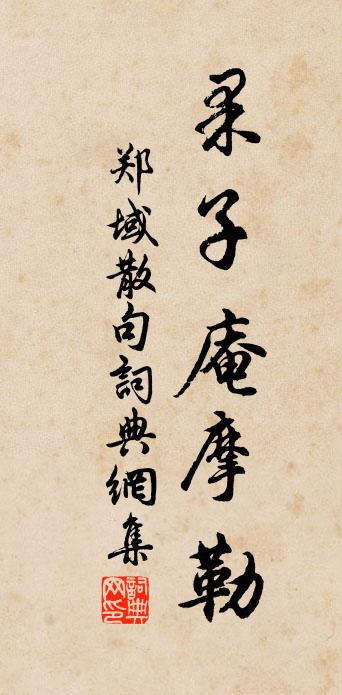 果子庵摩勒
郑域散句詞典網集
詞典網印